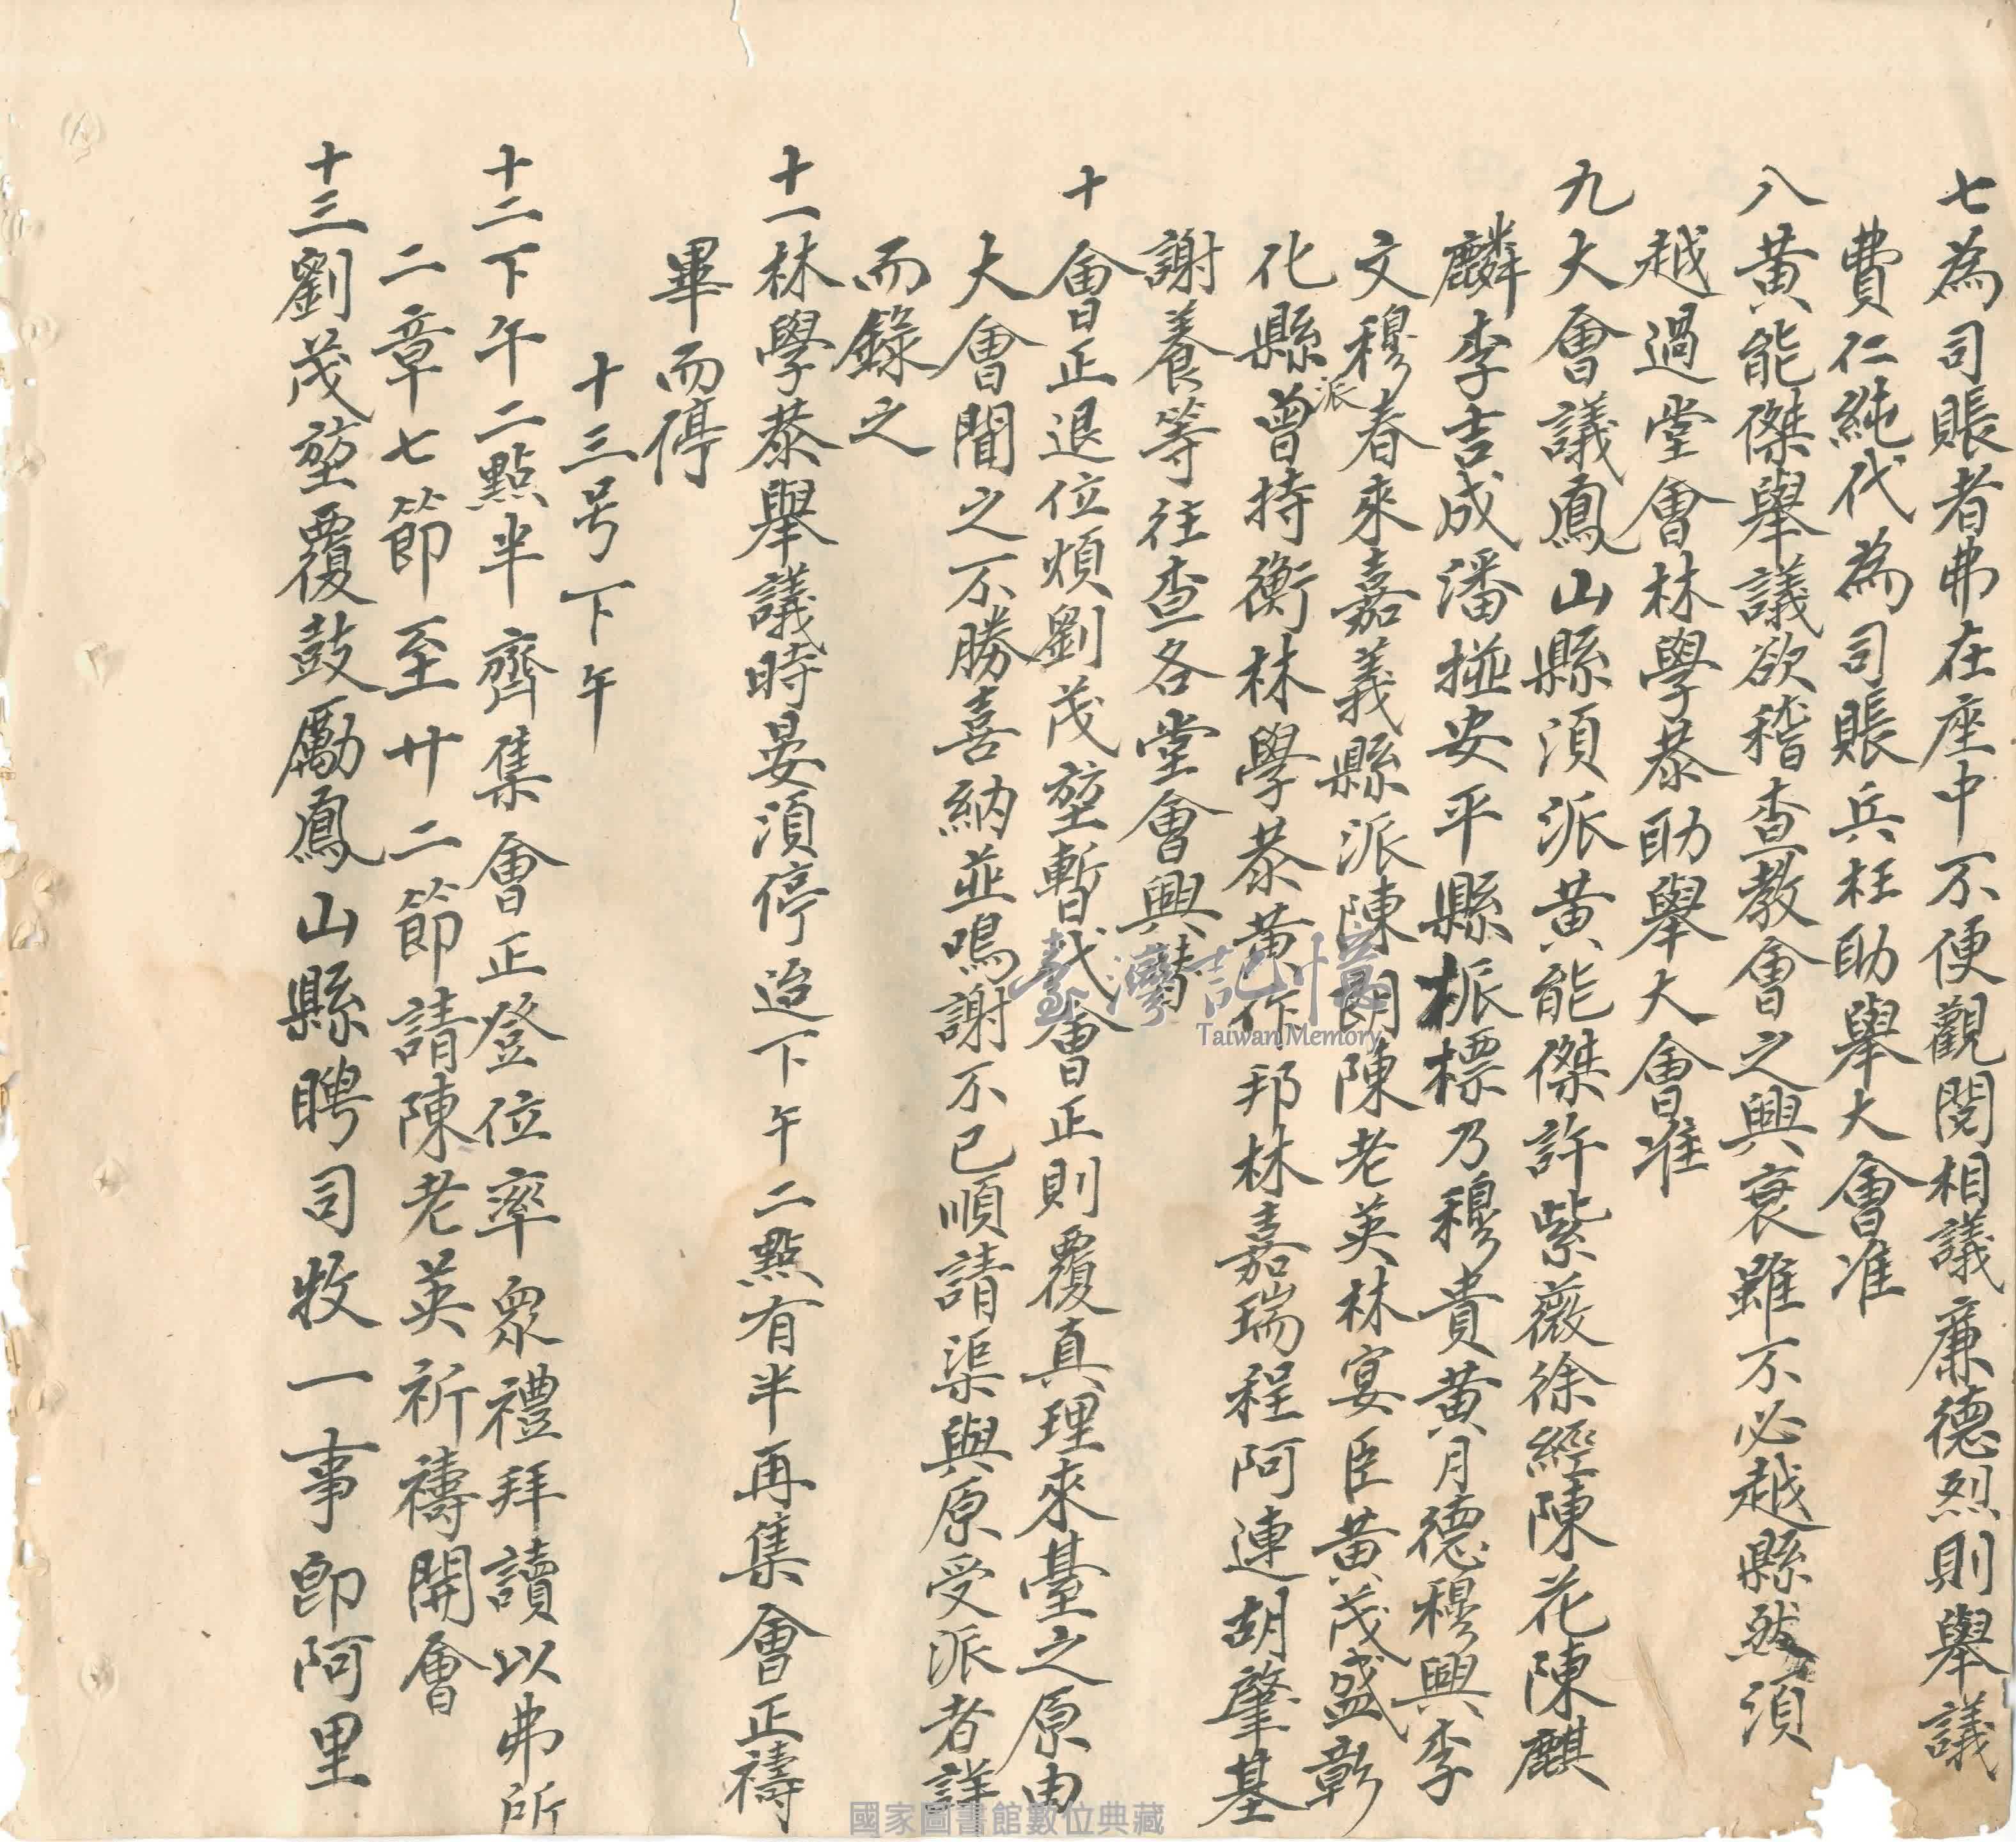 七為司賬者弗在座中不便觀閱相議廉德烈則舉議
費仁純代為司賬兵枉助舉大會准
八黃能傑舉議欲稽查教會之興衰雖不必越縣然須
越過堂會林學恭助舉大會准
九大會議鳳山縣須派黃能傑許紫薇徐經陳花陳麒
麟李吉成潘搃安平縣振標乃穆貴黃月德穆興李
文穆春來嘉義縣派陳朗陳老英林宴臣黃茂盛彰
化縣派曾持衡林學恭黃作邦林嘉瑞程阿連胡肇基
謝養等往查各堂會興替
十會正退位煩劉茂堃暫代會正則覆真理來臺之原由
大會聞之不勝喜納並鳴謝不已順請渠與原受派者詳
而錄之
十一林學恭舉議時晏須停迨下午二點有半再集會正禱
畢而停
十三号下午
十二下午二點半齊集會正登位率眾禮拜讀以弗所
二章七節至廿二節請陳老英祈禱開會
十三劉茂堃覆鼓勵鳳山縣聘司牧一事即阿里
臺灣記憶
Taiwan Memory
國家圖書館數位典藏